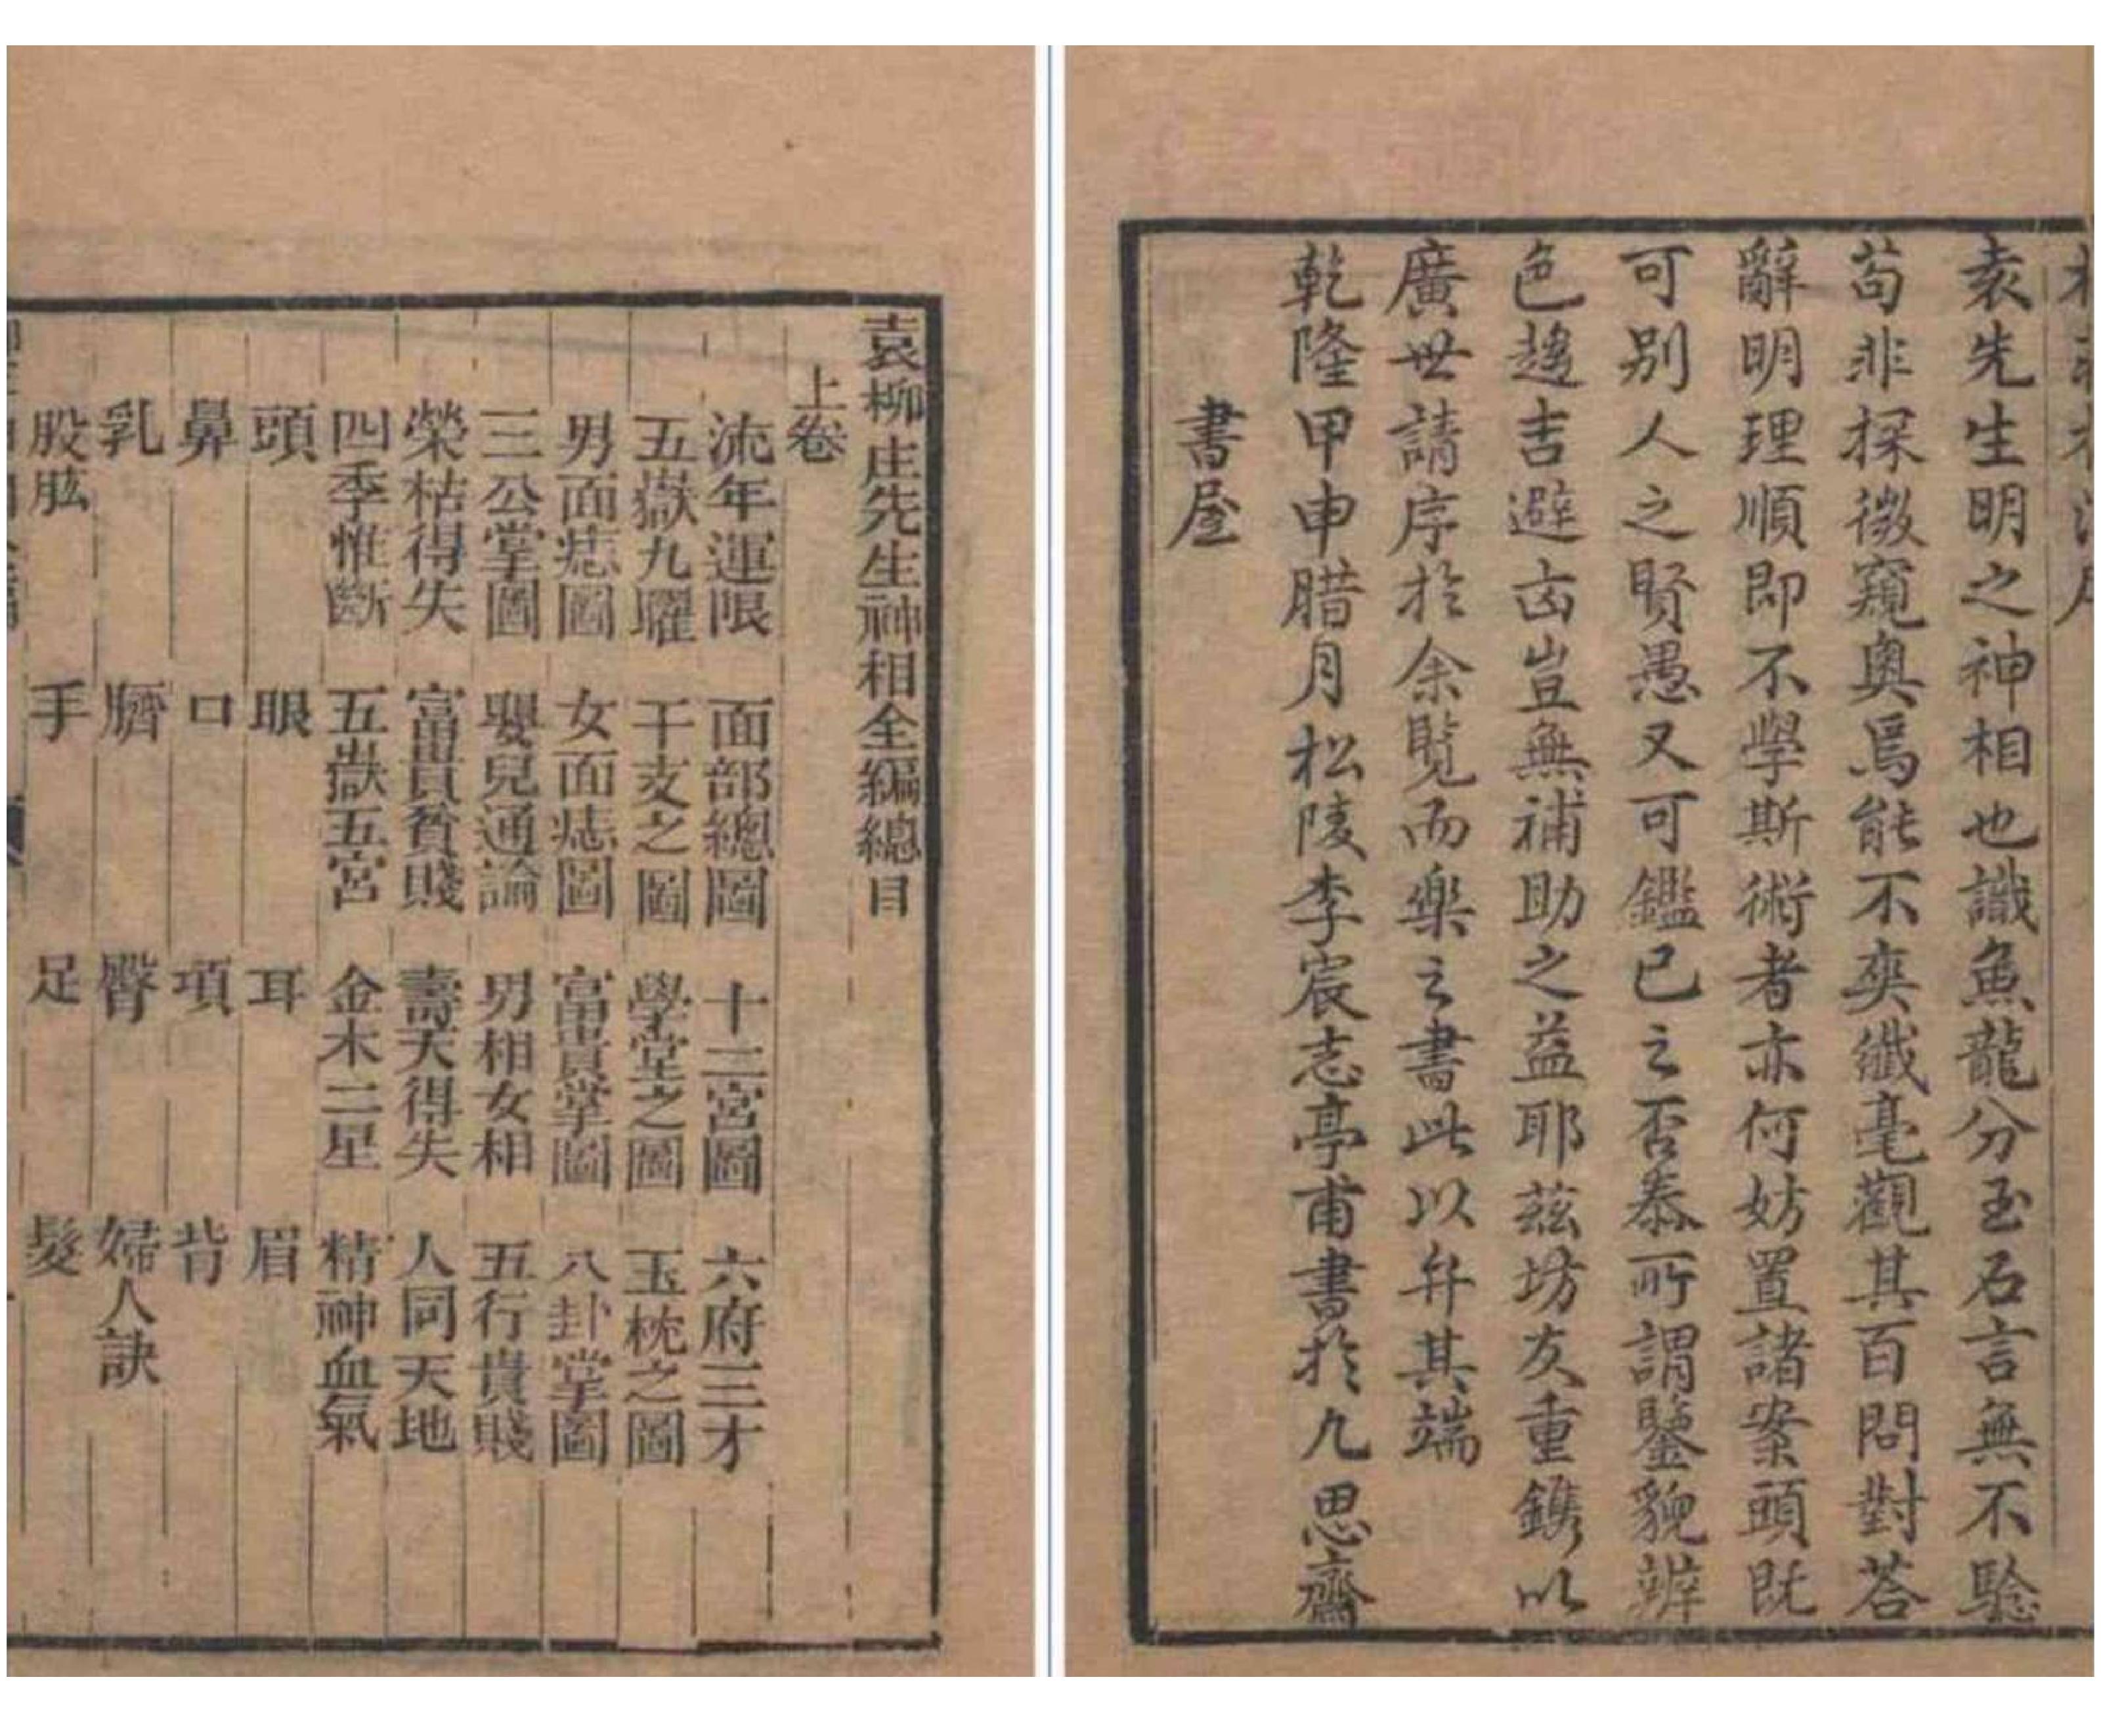 袁先生明之神相也識魚龍分玉石言無不驗
苟非探微窺奧焉能不爽纖毫觀其百問對荅
辭明理順即不學斯術者亦何妨置諸案頭既
可别人之賢愚又可鑑已之否泰所謂鑒貌辨
色趨吉避凶豈無補助之益耶茲坊友重鐫以
廣世請序於余覽而樂之書此以弁其端
乾隆甲申腊月松陵李宸志亭甫書於九思齋
書屋
袁柳庄先生神相全編總目
上卷
流年運限 面部總圖 十二宮圖 六府三才
五嶽九曜 干支之圖 學堂之圖 玉枕之圖
男面痣圖 女面痣圖 富貴掌圖 八卦掌圖
三公掌圖 嬰兒通論 男相女相 五行貴賤
榮枯得失 富貴貧賤 壽夭得失 人同天地
四季惟斷 五嶽五宮 金木二星 精神血氣
頭 眼 耳 眉
鼻 口 項 背
乳 臍 臀 婦人訣
股肱 手 足 髮